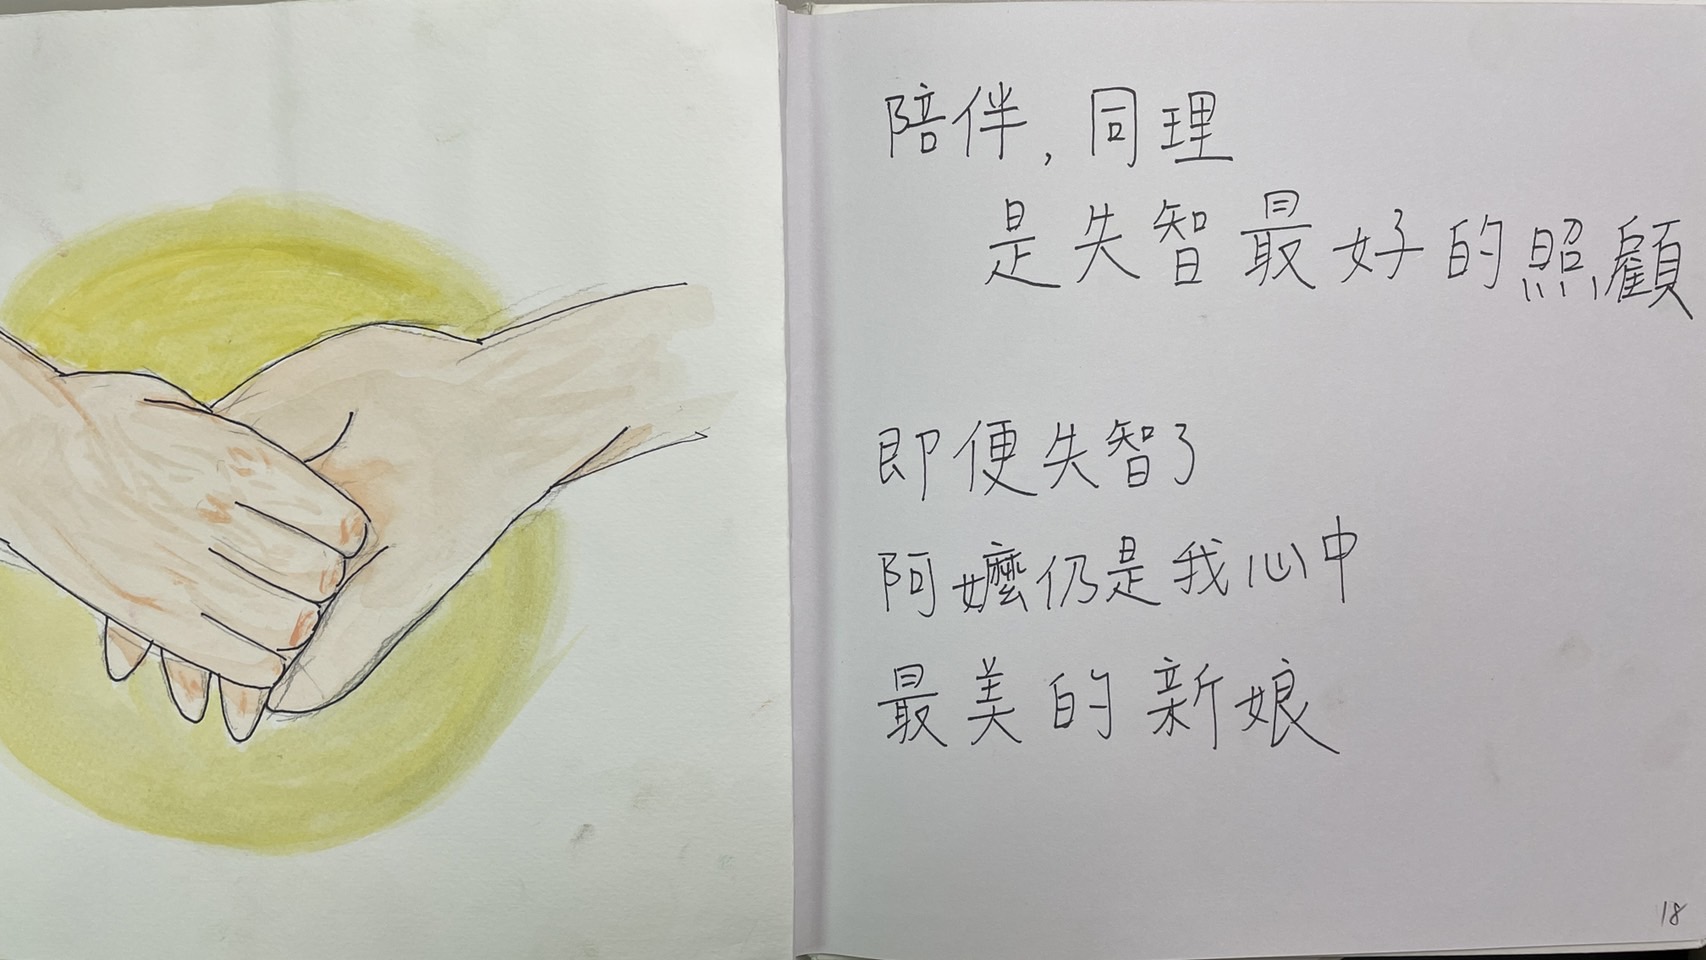 陪伴,同理
是失智最好的照顧
即便失智了
阿嬤仍是我心中
最美的新娘
18